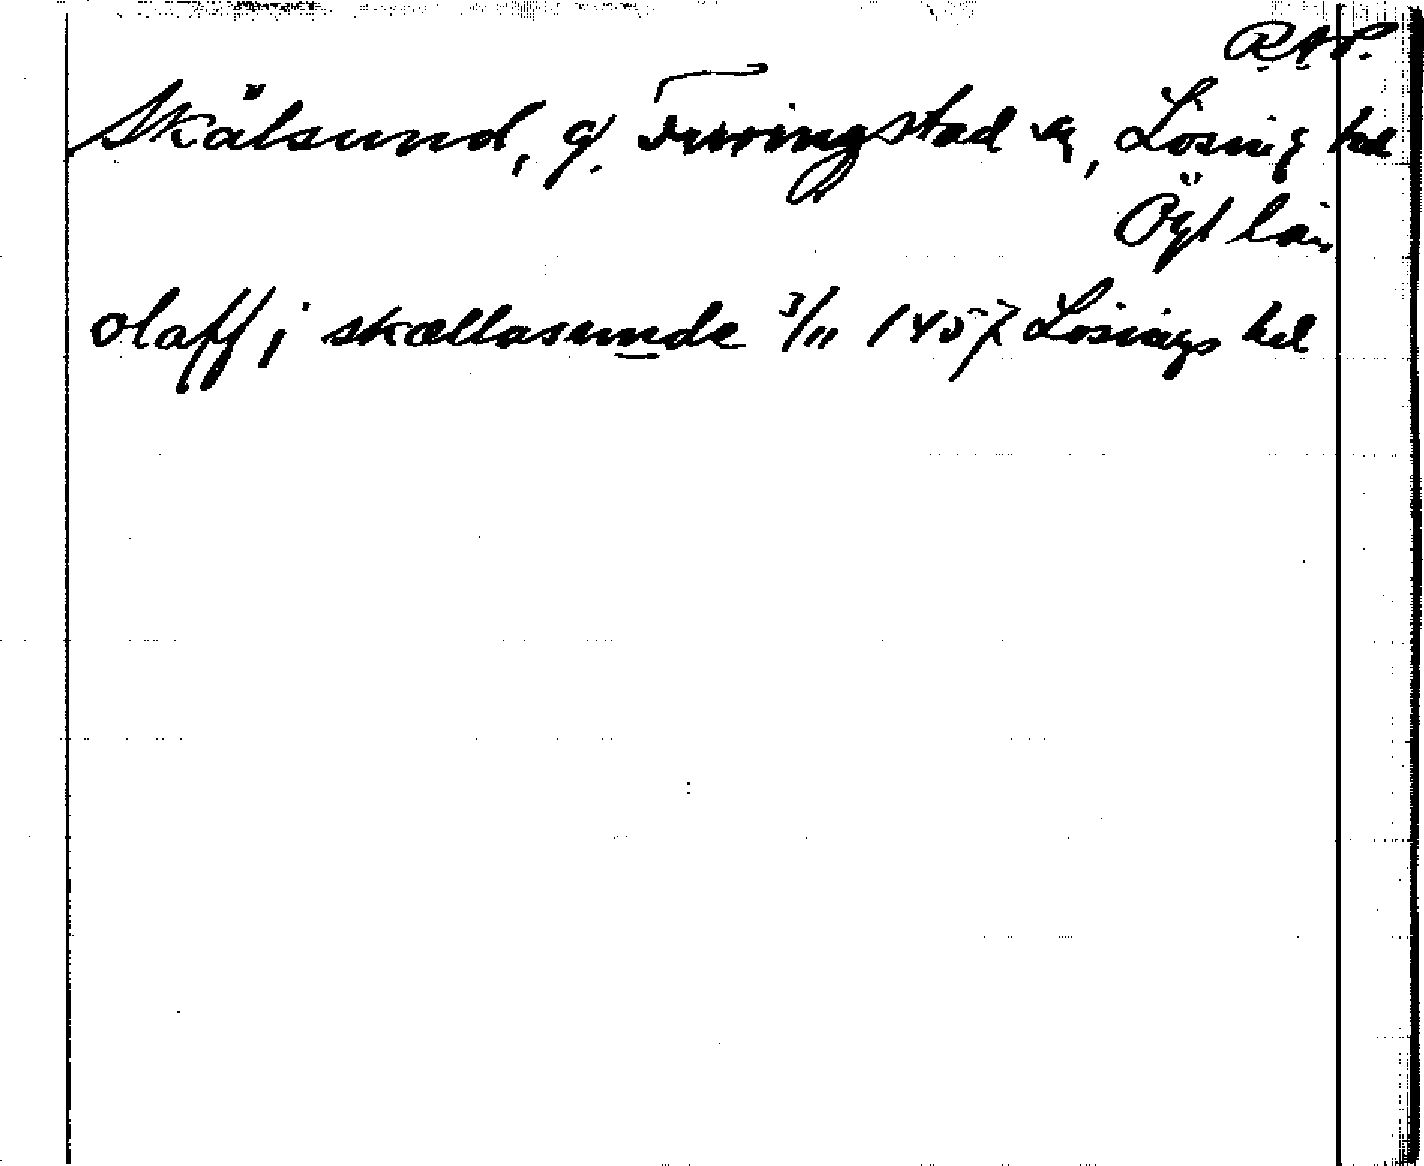 RAP.
Skälsund, g. Furingstad sn, Lösing hd
Ögl län
olaff i skællasunde 3/11 1457 Lösings hd